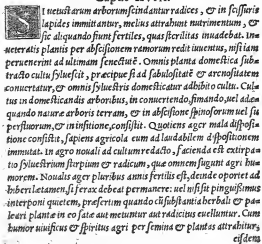 SI uetustarum arborum scindantur radices, & in scissuris
lapides immittantur, melius attrahunt nutrimentum, &
sic aliquando fiunt fertiles, quas sterilitas inuadebat. In-
ueteratis plantis per abscisionem ramorum redit iuuentus, nisi iam
peruenerint ad ultimam senectutē. Omnis planta domestica sub-
tracto cultu syluescit, præcipue si ad sabulositatē & arenositatem
conuertatur, & omnis syluestris domesticatur adhibito cultu. Cul-
tus in domesticandis arboribus, in conuertendo, fimando, uel adæ-
quando naturæ arboris terram, & in abscisione spinosorum uel su
perfluorum, & in insitione, consistit. Quoties ager mala disposi-
tione consistit, sapiens agricola eum ad laudabilem dispositionem
immutat. In agro nouali ad cultum redacto, facienda est extirpa-
tio syluestrium stirpium & radicum, quæ omnem sugunt agri hu-
morem. Noualis ager pluribus annis fertilis est, deinde oportet ad
hiberi lætamen, si ferax debeat permanere: uel nisi sit pinguissimus
interponi quietem, præsertim quando cessabantia herbis & pa-
leari plantæ in eo satæ aut metuntur aut radicitus euelluntur. Cum
humor uiuificus & spiritus agri per semina et plantas attrahatur,
eisdem